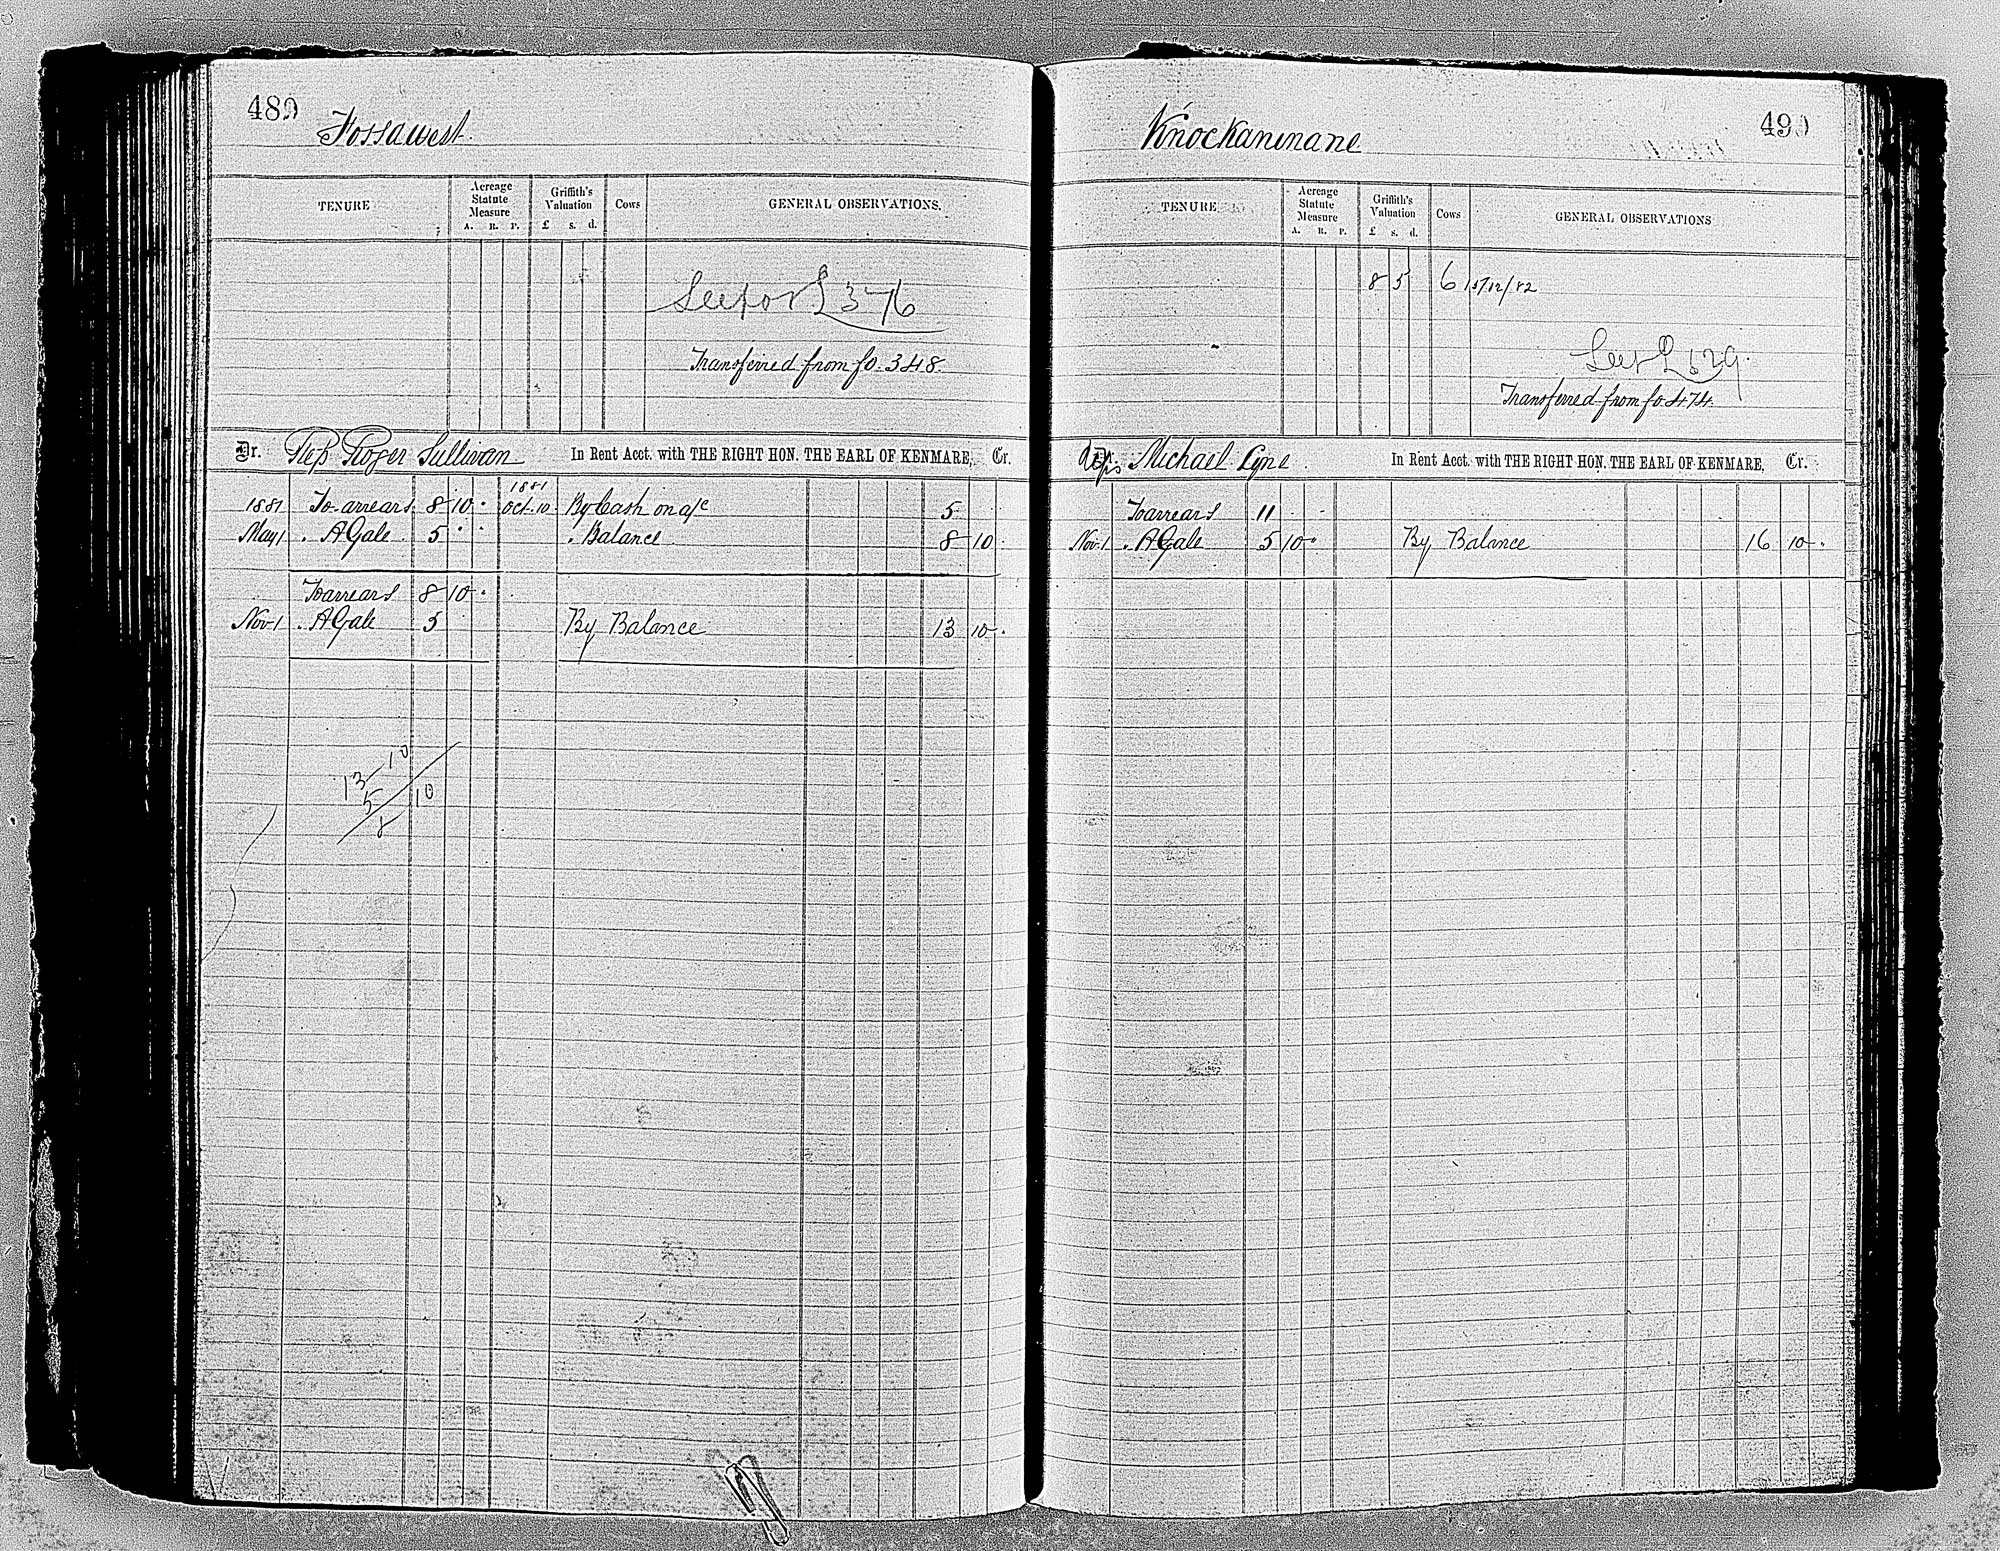 489
Fossa west
TENURE
Acreage Statute Measure
A. R. P.
Griffith's Valuation
£ s. d.
Cows
GENERAL OBSERVATIONS.
376
Transferred from fo. 348.
Dr. Reps Roger Sullivan In Rent Acct. with THE RIGHT HON. THE EARL OF KENMARE, Cr.
1881 To arrears 8 10 " 1881 Oct. 10 By Cash on a/c 5
May 1 " A Gale 5 " " " Balance 8 10 "
To arrears 8 10 "
Nov 1 " A Gale 5 By Balance 13 10 "
13-10
5
8 10
490
Knockaninane
TENURE
Acreage Statute Measure
A. R. P.
Griffith's Valuation
£ s. d.
Cows
GENERAL OBSERVATIONS
8 5 6 15/12/82
See
Transferred from fo 474.
Dr. Reps Michael Lyne In Rent Acct. with THE RIGHT HON. THE EARL OF KENMARE, Cr.
To arrears 11
Nov 1 " A Gale 5 10 " By Balance 16 10 "